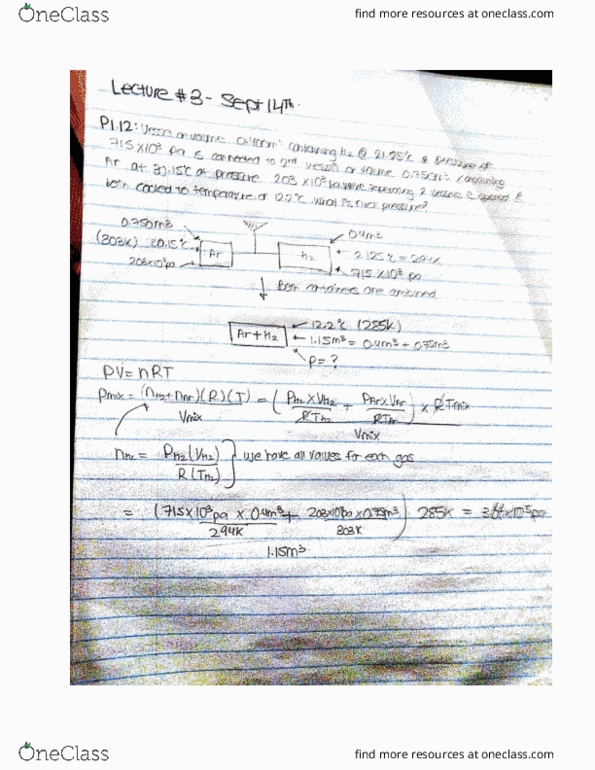 OneClass
find more resources at oneclass.com
Lecture #3 - Sept 14th.
P1.12: Vessel of volume 0.400m³ containing h₂ @ 21.25°c & pressure of
715 x10³ Pa is connected to 2nd vessel of volume 0.75cm³ containing
Ar at 30.15°c at pressure 203 x10³ pa valve separating 2 vessels is opened &
both cooled to temperature of 12.2°c. What is pressure?
0.750m3
(303k) 30.15°c
Ar
208x10³pa
h₂
0.4m3
2.125°c = 294k
715 x10³ pa
Both containers are combined
Ar+h₂
12.2°c (285k)
1.15m³ = 0.4m³ + 0.75m3
P= ?
PV= nRT
Pmix = (nH2+nAr)(R)(T) = ( PH2 x VH2 + PAr x VAr ) x R Tmix
Vmix RTH2 RTAr Vmix
nH2 = PH2 (VH2) } we have all values for each gas
R (TH2)
= (715x10³pa x 0.4m³ + 203x10³pa x 0.75m³) 285k = x10⁵pa
294k 303k
1.15m³
OneClass
find more resources at oneclass.com